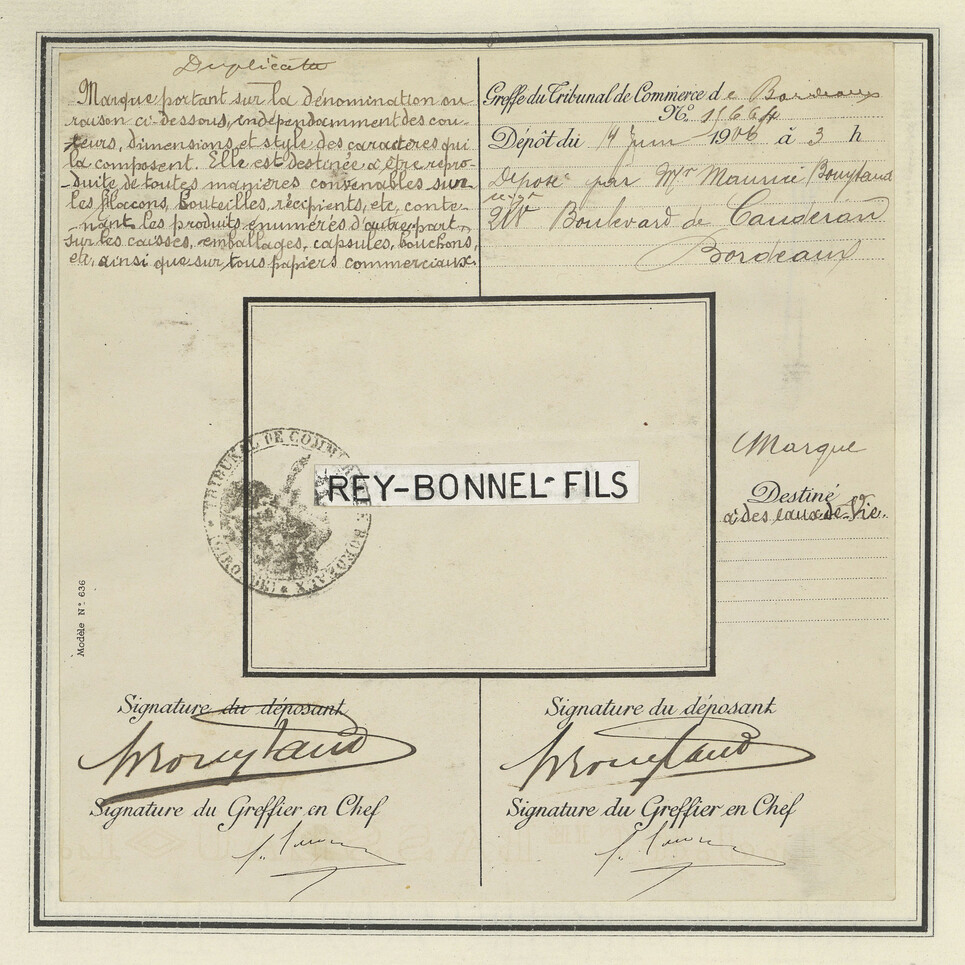 Duplicata
Marque portant sur la dénomination ou
raison ci-dessous, indépendamment des cou-
leurs, dimensions et style des caractères qui
la composent. Elle est destinée à être repro-
-duite de toutes manières convenables sur
les flacons, bouteilles, récipients, etc, conte-
-nant les produits enumérés d'autre part,
sur les caisses, emballages, capsules, bouchons,
etc, ainsi que sur tous papiers commerciaux.
Greffe du Tribunal de Commerce de Bordeaux
No. 15664
Dépôt du 14 Juin 1906 à 3 h
Déposé par Mr Maurice Bouytaud
Boulevard de Caudéran
Bordeaux
TRIBUNAL DE COMMERCE DE BORDEAUX
REY-BONNEL-FILS
Marque
Destiné
à des eaux-de-Vie.
Modèle No. 636
Signature du déposant
Bouytaud
Signature du Greffier en Chef
Signature du déposant
Bouytaud
Signature du Greffier en Chef